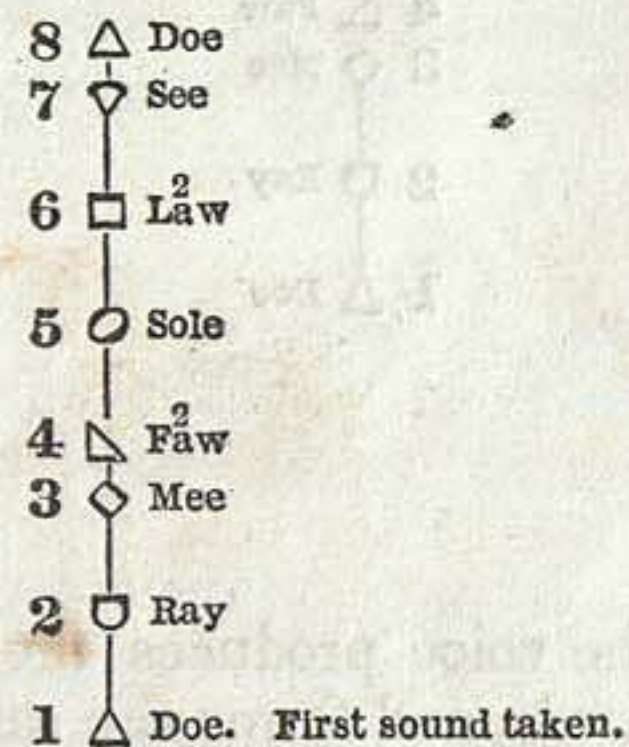 8 Doe
7 See
6 Law
2
5 Sole
4 Faw
2
3 Mee
2 Ray
1 Doe. First sound taken.